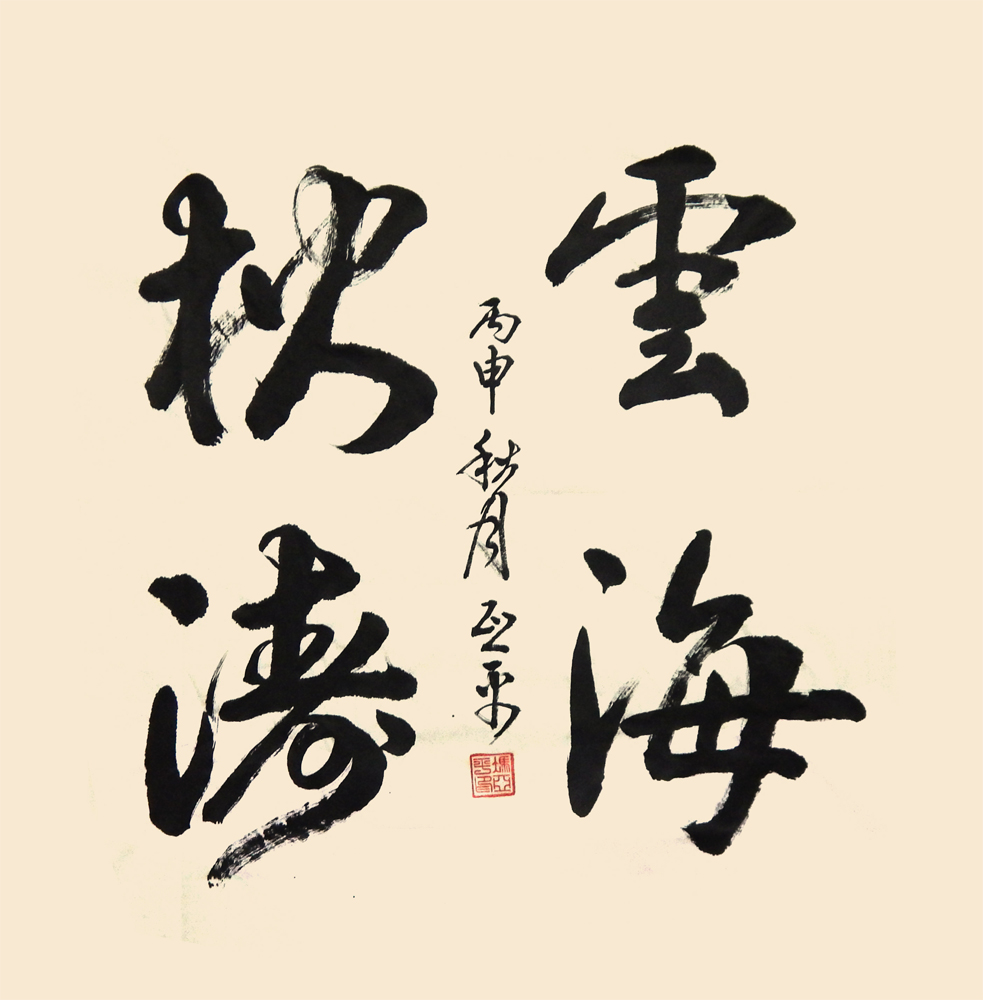 雲海
松濤
丙申秋月亞平